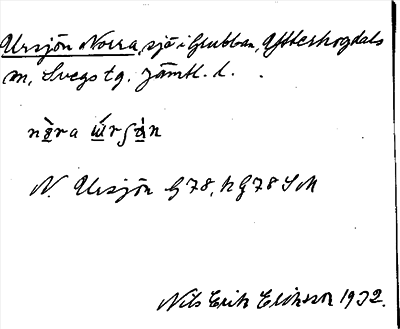 Ursjön Norra, sjö i Grubban, Ytterhogdals
sn, Svegs tg. Jämtl. l.
nɑ̀ra ẁrʃɑ̀n
N. Ursjön G 78, kG 78 SM
Nils Erik Eliasson 1932.